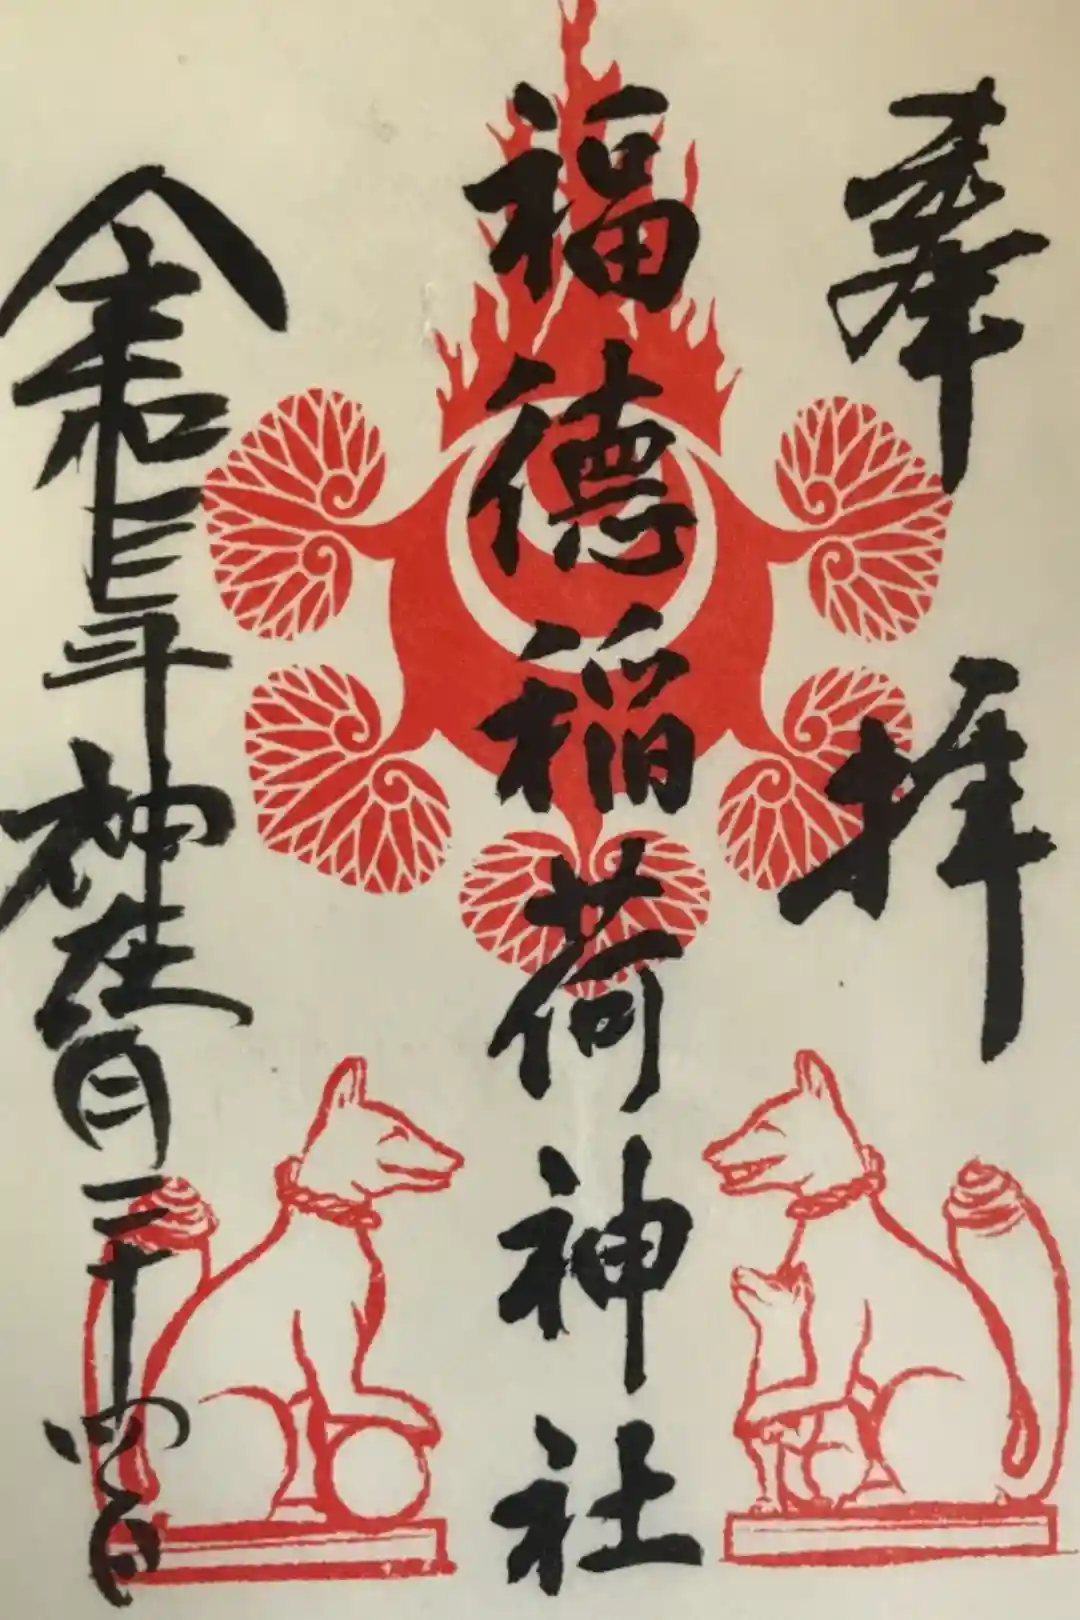 奉拝
福德稲荷神社
令和三年神在月二十四日